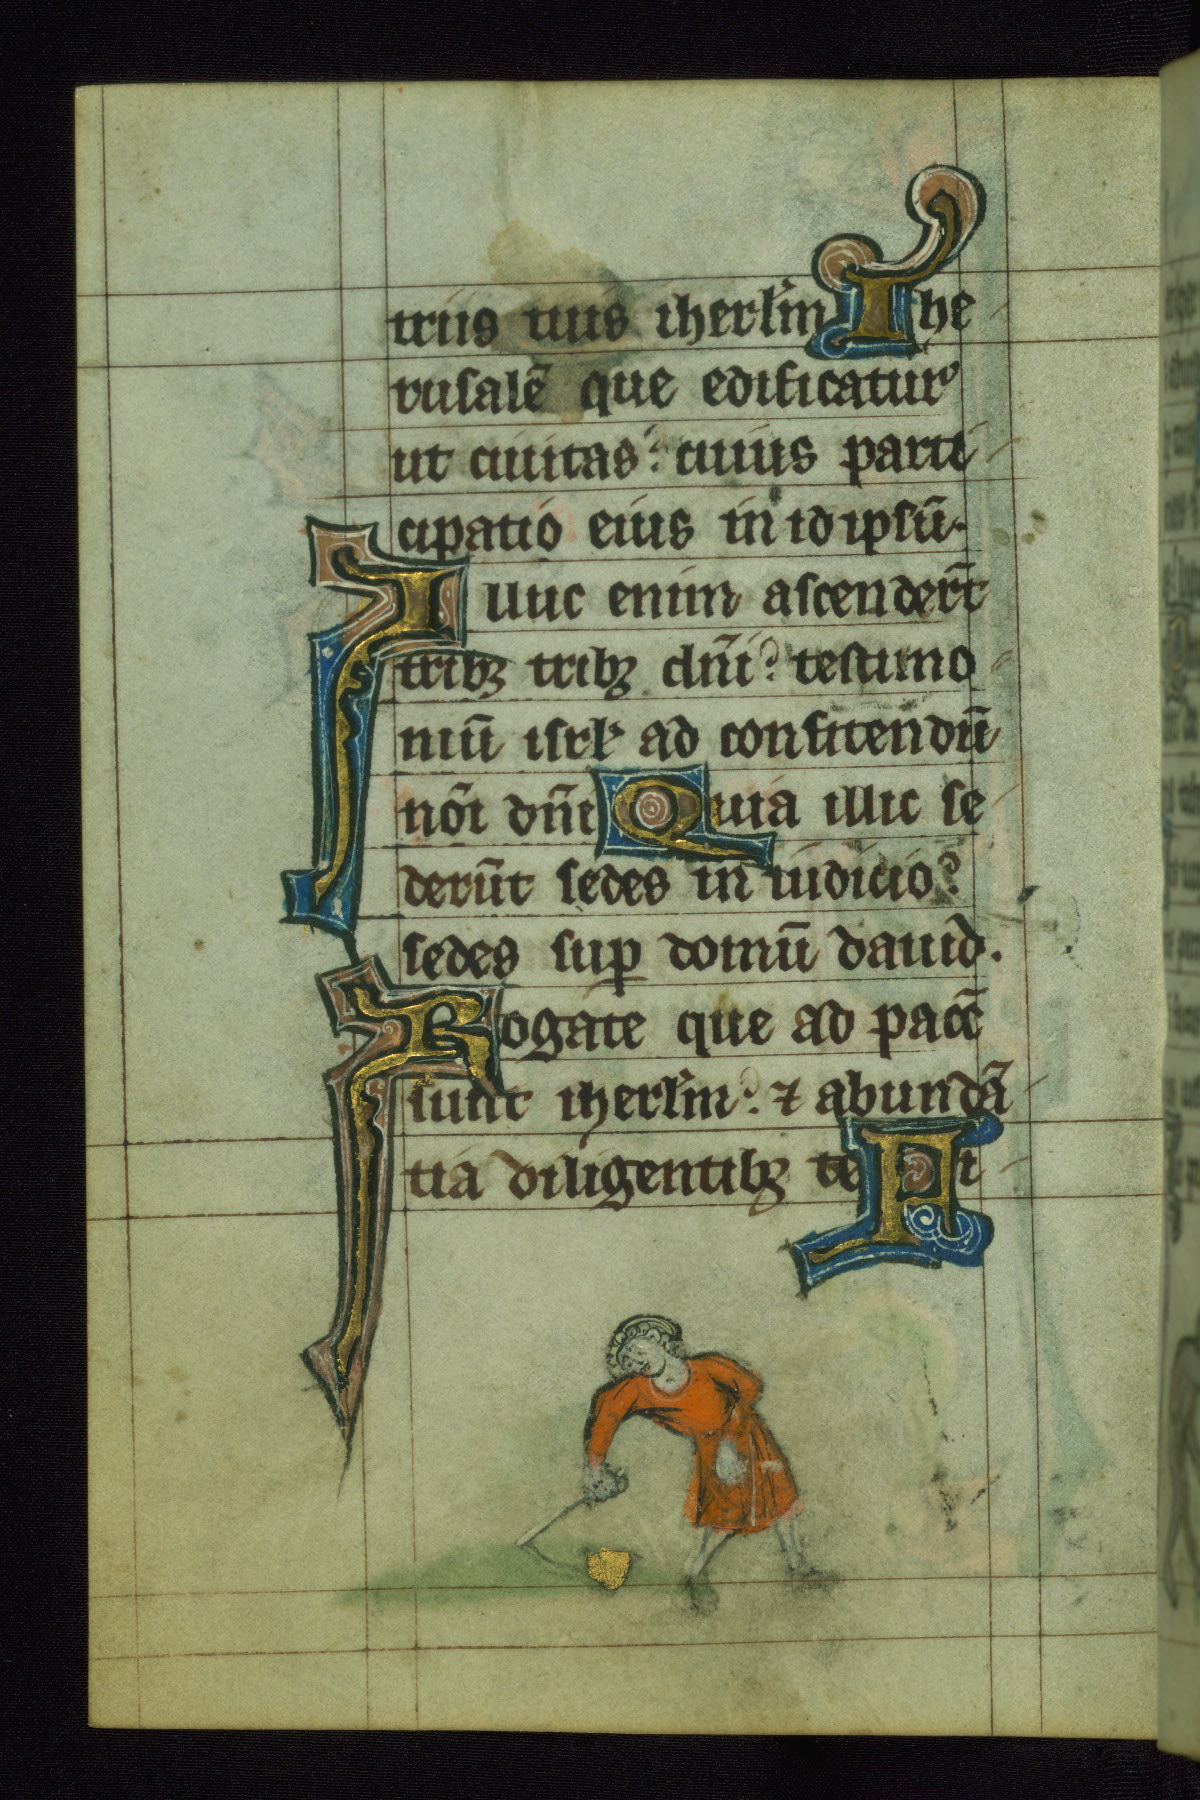 triis tuis iherl'm Ihe
rusalē que edificatur
ut ciuitas: cuius parti
cipatio eius in id ipsū.
Illuc enim ascenderūt
tribꝫ tribꝫ dn̄i: testimo
niū isrl' ad confitendū
nōi dn̄i Quia illic se
derūt sedes in iudicio:
sedes sup̱ domū dauid.
Rogate que ad pacē
sunt iherl'm: ⁊ abundā
tia diligentibꝫ te Fi